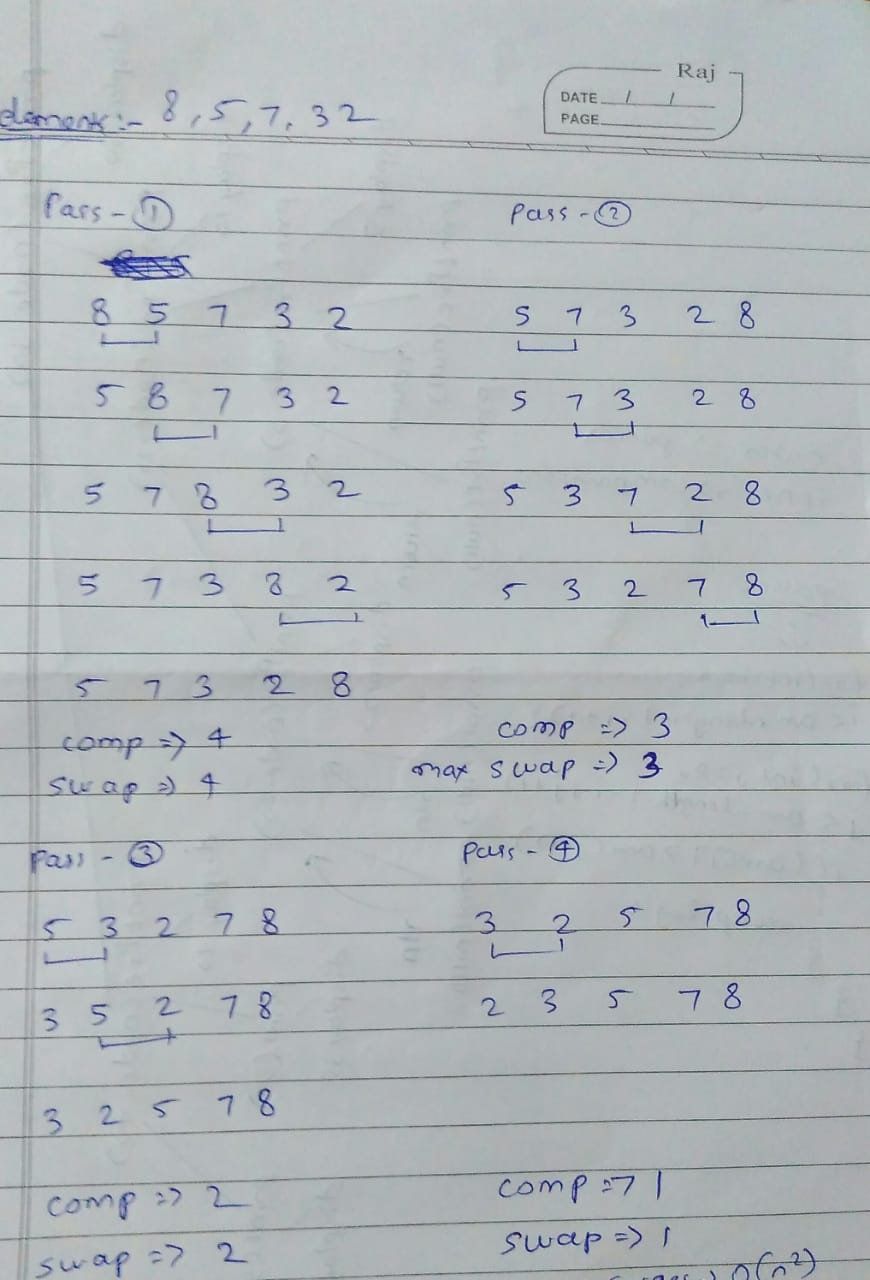 Raj
DATE / /
PAGE
elements :- 8, 5, 7, 3 2
Pass - ①
8 5 7 3 2
5 8 7 3 2
5 7 8 3 2
5 7 3 8 2
5 7 3 2 8
comp => 4
swap => 4
Pass - ②
5 7 3 2 8
5 7 3 2 8
5 3 7 2 8
5 3 2 7 8
comp => 3
max swap => 3
Pass - ③
5 3 2 7 8
3 5 2 7 8
3 2 5 7 8
comp => 2
swap => 2
Pass - ④
3 2 5 7 8
2 3 5 7 8
comp => 1
swap => 1
O(n²)